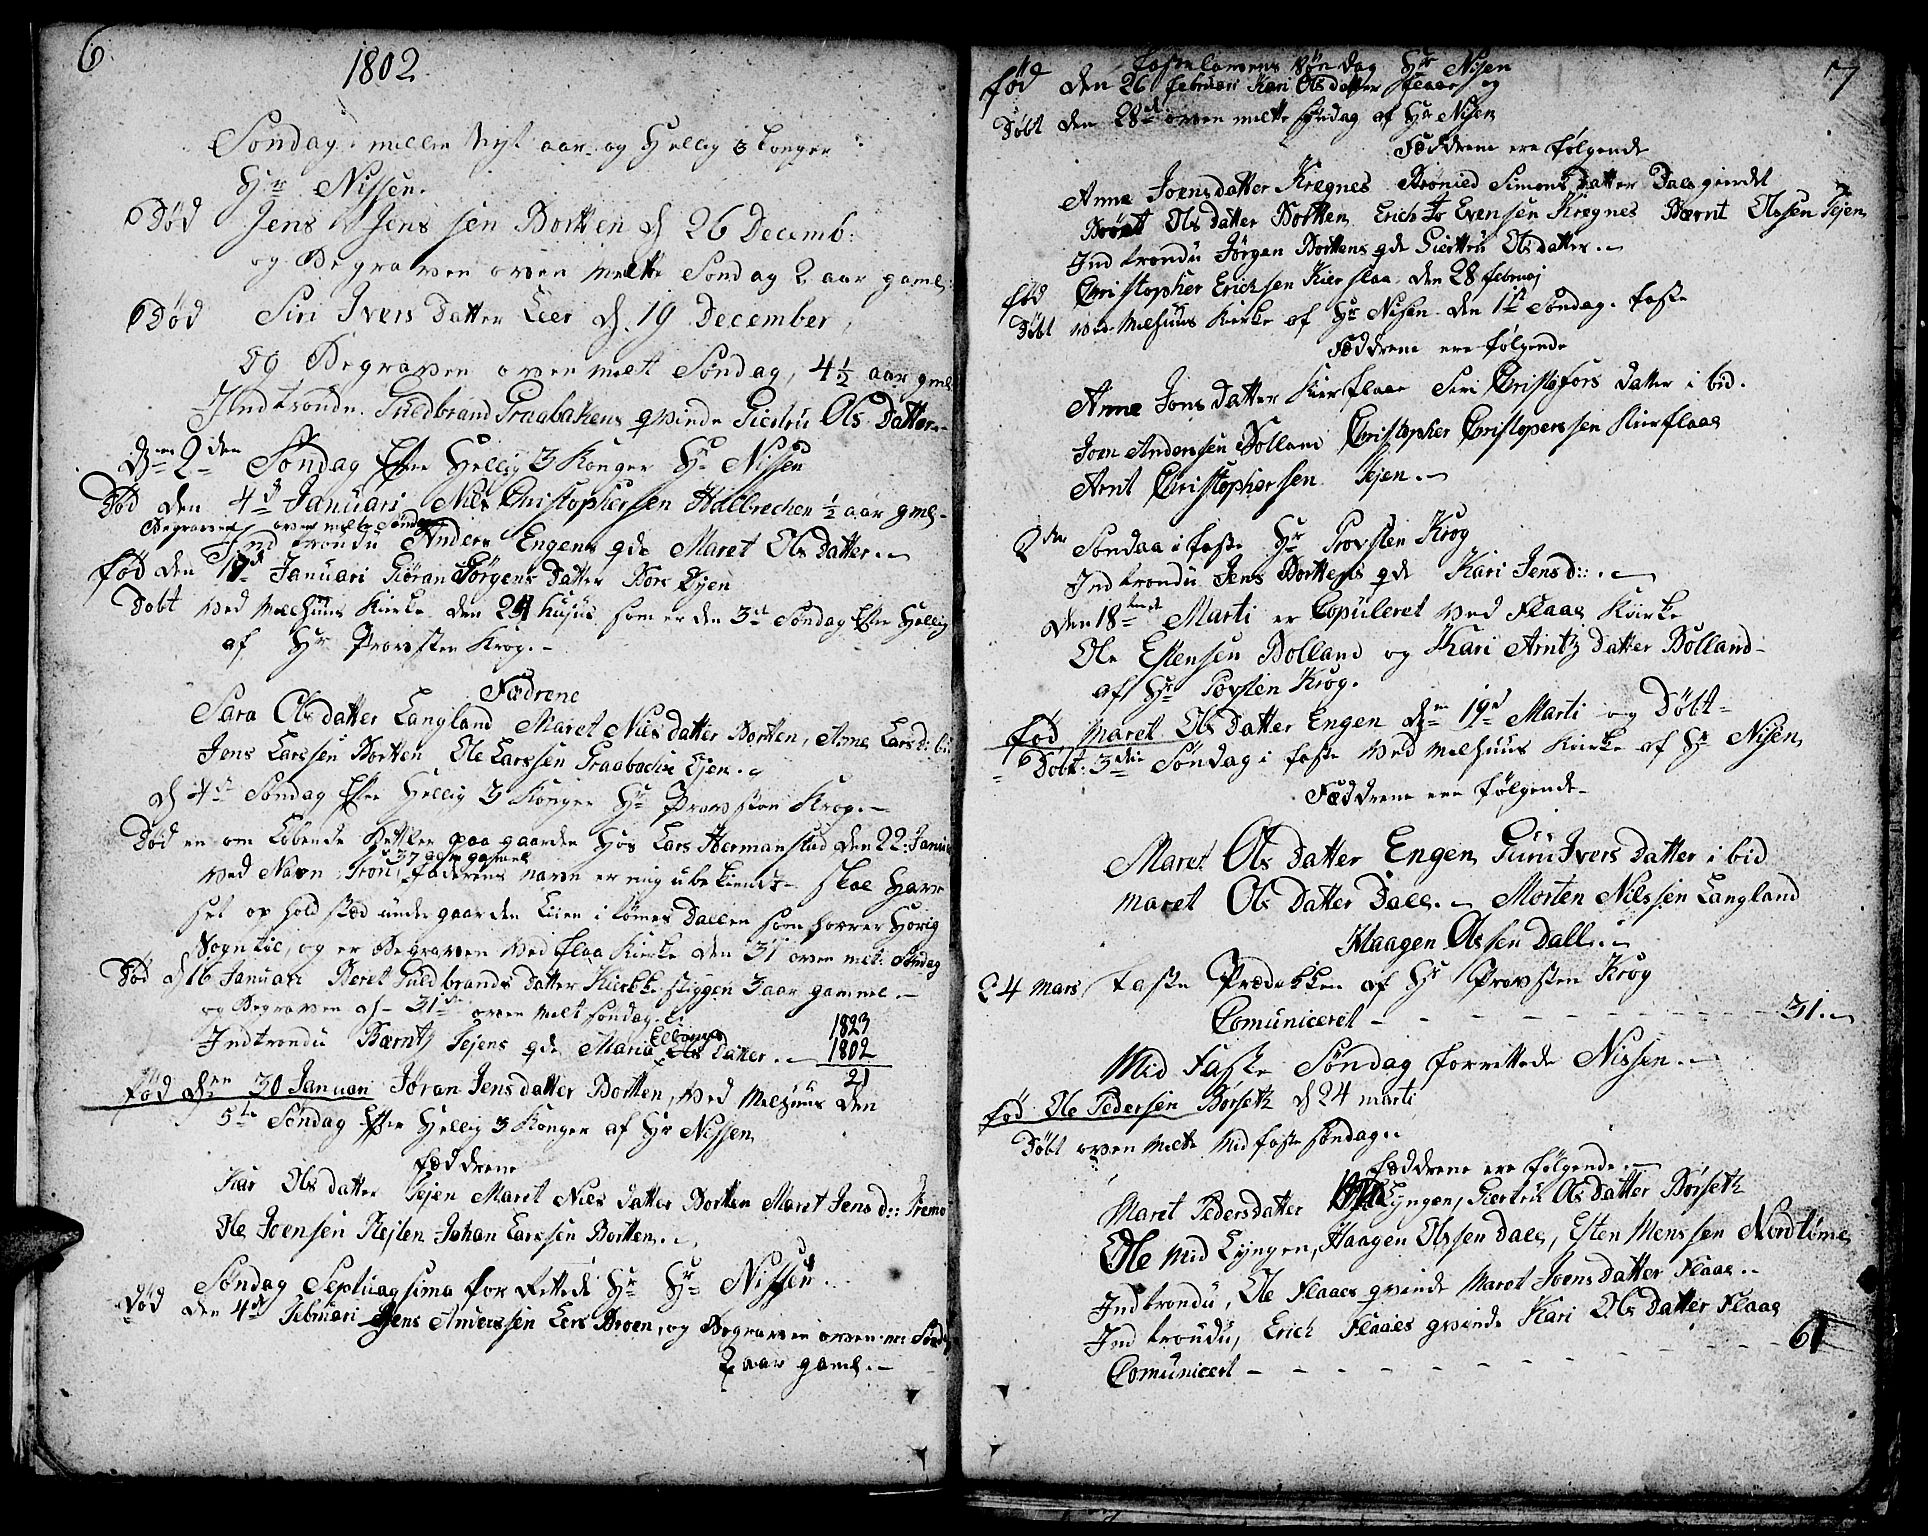 6
1802
Søndag i mellem Nyt aar og Hellig 3 Konger
Hr Nissen.
Død Jens Jenssen Bortten d 26 Decemb:
og Begraven oven melte Søndag 2 aar gaml:
Død Siri Ivers datter Leer d. 19 December,
og Begraven oven melt Søndag, 4½ aar gml
Indtrondu. Guldbrand Graabakens qvinde Giertru Ols Datter.
Den 2den Søndag Efter Hellig 3 Konger Hr Nissen
Død den 4de Januari Nils Christophersen ½ aar gml-
Begraven oven melte Søndag
Indtrondu Anders Engens qde Maret Ols datter.
fød den 17de Januari Giøran Jørgens datter Bors Ejen
Døbt ved Melhuus Kirke den 24 som er den 3die Søndag Efter Hellig
af Hr Provsten Krog.
Fadrene
Sara Ols datter Langland Maret Niels datter Bortten, Anne Larsd: bid
Jens Larssen Bortten Ole Larssen Graabache Ejen.
d 4de Søndag Efter Hellig 3 Konger Hr Provsten Krog.
Død en om Løbende paa gaarden hos Lars Hermanstad den 22: Janua
ved Navn Tron, 37 aar gammel Faderens navn er mig ubekiendt skal Hav
set op hold sted under gaarden Lien i Dallen som horer Horig
Sogn til, og er Begraven ved Flaa Kirke den 31 oven melt: Søndag
Død d 16 Januari Beret Guldbrands datter Kirkke stiggen 3 aar gamml.
og Begraven d 31te oven melt søndag.
Indtrondu Berntz Sejens qde Maria Ellings Datter.
1823
1802
21
fød den 30 Januari Jøran Jens datter Bortten, ved Melhuus den
5te Søndag Efter Hellig 3 Konger af Hr Nissen
Faddrene
Kar Ols datter Sejen Maret Niels datter Bortten Maret Jensd:: Tremo
Ole Joensen Johan Larssen Bortten.
Søndag Septuagsima for Rettede Hr Hr Nissen.
Død den 4de Februari Jens Anderssen Lers Broen, og Begraven oven me: Sønd
2 aar gaml.
7
Fastelavens Søndag Hr Nisen
fød den 26 Februari Kari Ols datter Flaa og
Døbt den 28de oven melte søndag af Hr Nisen
Faddrene ere følgende
Anne Joens datter Kregnes Simons datter Dals
Ols datter Bortten Erich Evensen Kregnes Bernt Olssen Sejen
Indtrondu Jørgen Bortens qde Giertru Ols datter.
fød Christopher Erichsen Kierflaa den 28 februaj
Døbt ved Melhuus Kirke af Hr Nisen den 1te Søndag. faste
Faddrene ere følgende
Anne Jons datter Kierflaae Siri Christofors datter i bid.
Joen Andersen Bolland Christopher Christopersen Kierflaae
Arnt Christophersen Sejen.
2den Søndaa i faste Hr Provsten Krog
Indtrondu Jens Borttens qde Kari Jens d::.
den 18tende Marti er Copuleret ved Flaae Kirke
Ole Estensen Bolland og Kari Arntz datter Bolland
af Hr Povsten Krog.
fød Maret Ols Datter Engen den 19de Marti og Døbt
Døbt: 3die Søndag i faste ved Melhuus Kirke af Hr Nisen
Faddrene ere følgende
Maret Ols datter Engen Guru Ivers datter i bid
Maret Ols datter Dall. Morten Nilssen Langland
Haagen Olssen Dall.
24 Mars faste Prædekken af Hr Provsten Krog
Comuniceret - - - 31.
Mid Faste Søndag forrettede Nissen.
fød Ole Pedersen Børsetz d 24 marti
Døbt oven melte Mid faste søndag.
faddrene ere følgende.
Maret Peders datter Lyngen, Giertru Ols datter Børsetz
Ole Mid Lyngen, Haagen Olssen Dall, Esten Monssen Nordtømes
Indtrondu, Ole Flaaes qvinde Maret Joens datter Flaae.
Indtrondu, Erich Flaaes qvinde Kari Ols datter Flaae
Comunicert - - - 61